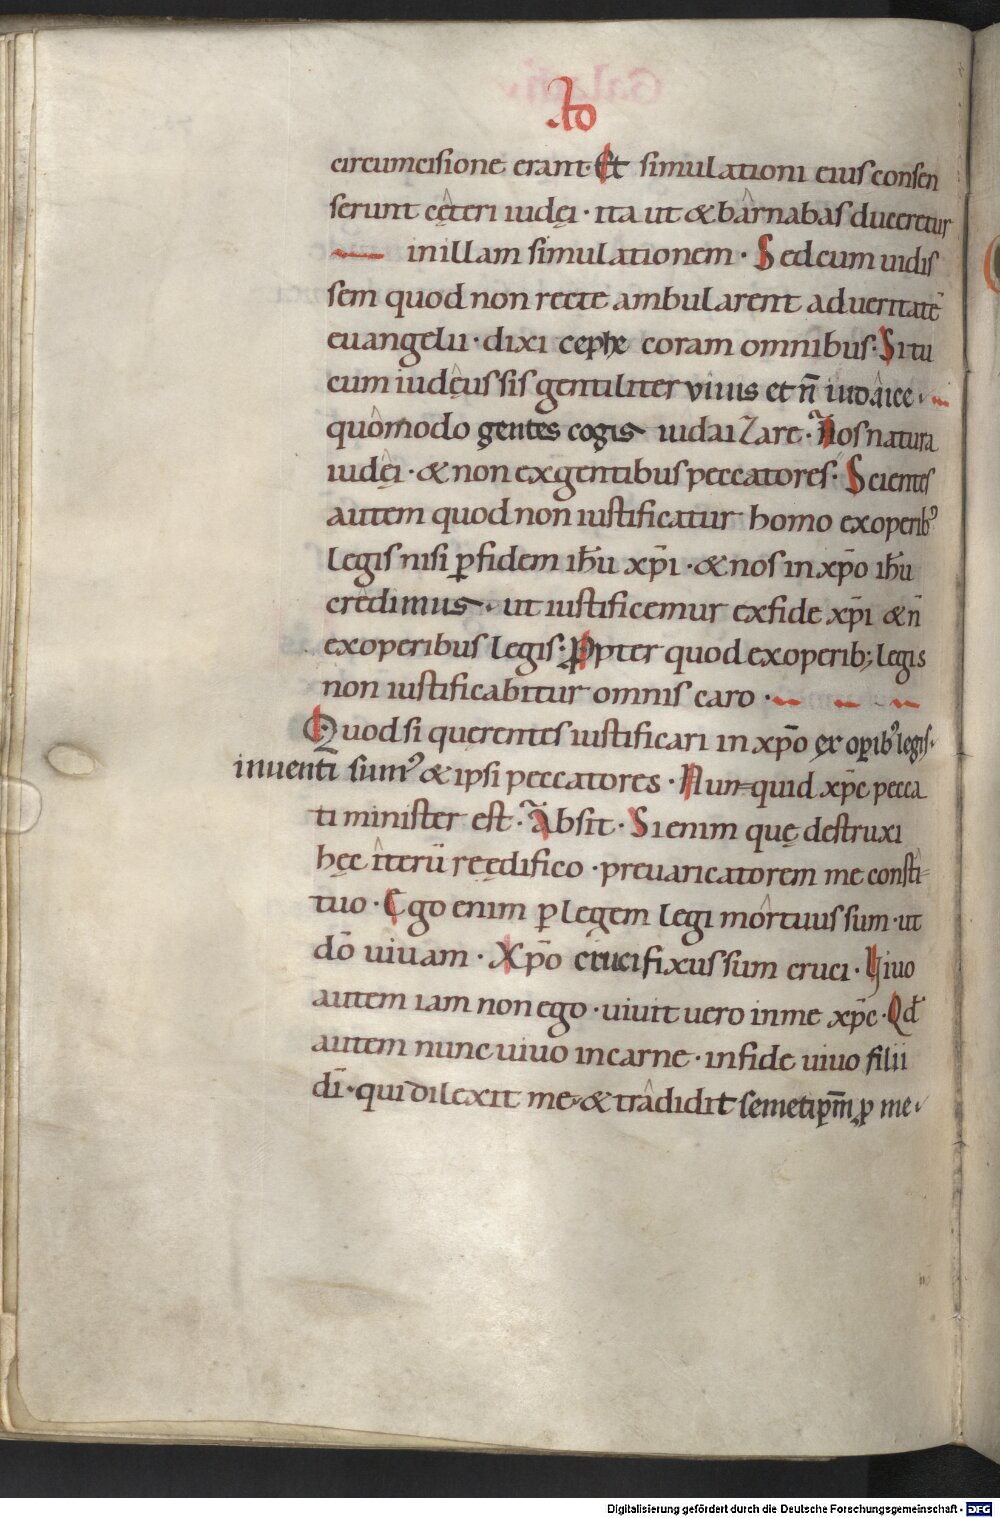 Ad
circumcisione erant· Et simulationi eius consen
serunt cęteri iudęi · ita ut & barnabas duceretur
in illam simulationem · Sed cum uidis
sem quod non recte ambularent ad ueritatē
euangelii · dixi cephę coram omnibus · Si tu
cum iudęus sis gentiliter viuis et n̄ iudâice ·
quômodo gentes cogis iudaizare · Nos natura
iudęi · & non ex gentibus peccatores · Scientes
autem quod non iustificatur homo ex operibꝰ
legis nisi ꝑ fidem ihū xp̄i · & nos in xp̄o ihū
credimus · ut iustificemur ex fide xp̄i & n̄
ex operibus legis · Ꝓpter quod ex operib; legis
non iustificabitur omnis caro ·
Quod si querentes iustificari in xp̄o ex oꝑibꝰ legis ·
inuenti sumꝰ & ipsi peccatores · Nunquid xp̄c pecca
ti minister est · Absit · Si enim quę destruxi
hęc iterū reędifico · preuaricatorem me consti-
tuo · Ego enim ꝑ legem legi mortuus sum · ut
dō uiuam · Xp̄o crucifixus sum cruci · Uiuo
autem iam non ego · uiuit uero in me xp̄c · Qđ
autem nunc uiuo in carne · in fide uiuo filii
dī · qui dilexit me & trâdidit semetiꝑm̄ ꝓ me
Digitalisierung gefördert durch die Deutsche Forschungsgemeinschaft - DFG